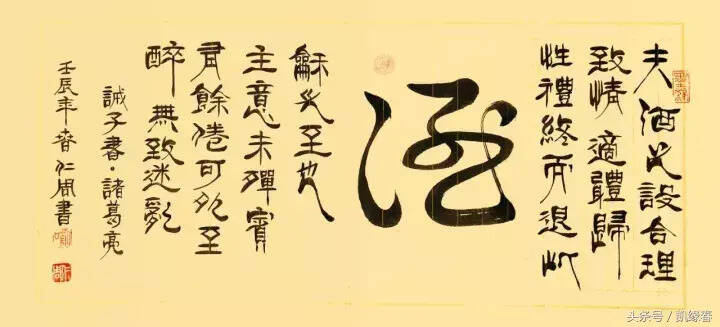 夫酒之設合理
致情適體歸
性禮終而退此
龢之至也
主意未殫賓
有餘倦可以至
醉無致迷亂
誡子書·諸葛亮
壬辰年春仁周書
头条号/凱缘春